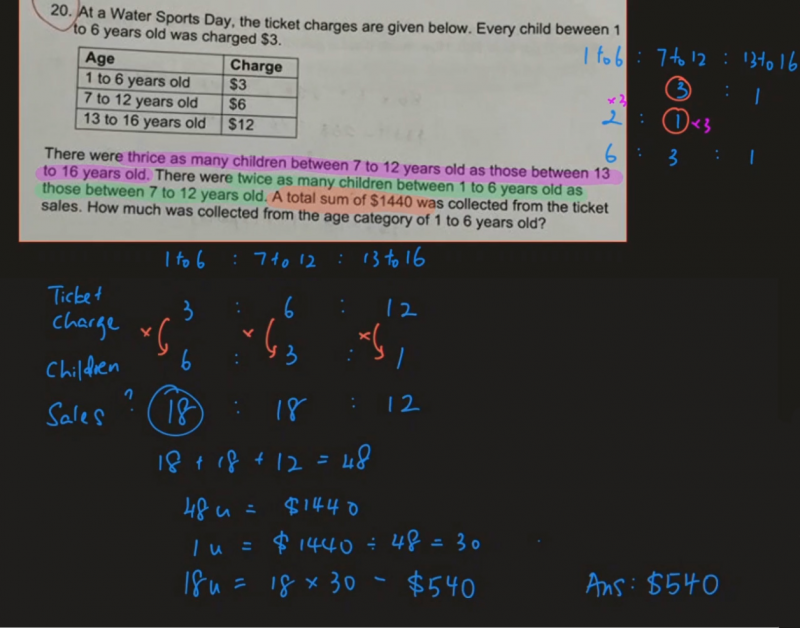 20. At a Water Sports Day, the ticket charges are given below. Every child beween 1
to 6 years old was charged $3.
Age Charge
1 to 6 years old $3
7 to 12 years old $6
13 to 16 years old $12
There were thrice as many children between 7 to 12 years old as those between 13
to 16 years old. There were twice as many children between 1 to 6 years old as
those between 7 to 12 years old. A total sum of $1440 was collected from the ticket
sales. How much was collected from the age category of 1 to 6 years old?
1 to 6 : 7 to 12 : 13 to 16
3 : 1
x3
2 : 1 x3
6 : 3 : 1
1 to 6 : 7 to 12 : 13 to 16
Ticket charge 3 : 6 : 12
x x x
Children 6 : 3 : 1
Sales ? 18 : 18 : 12
18 + 18 + 12 = 48
48u = $1440
1u = $1440 ÷ 48 = 30
18u = 18 × 30 - $540
Ans: $540